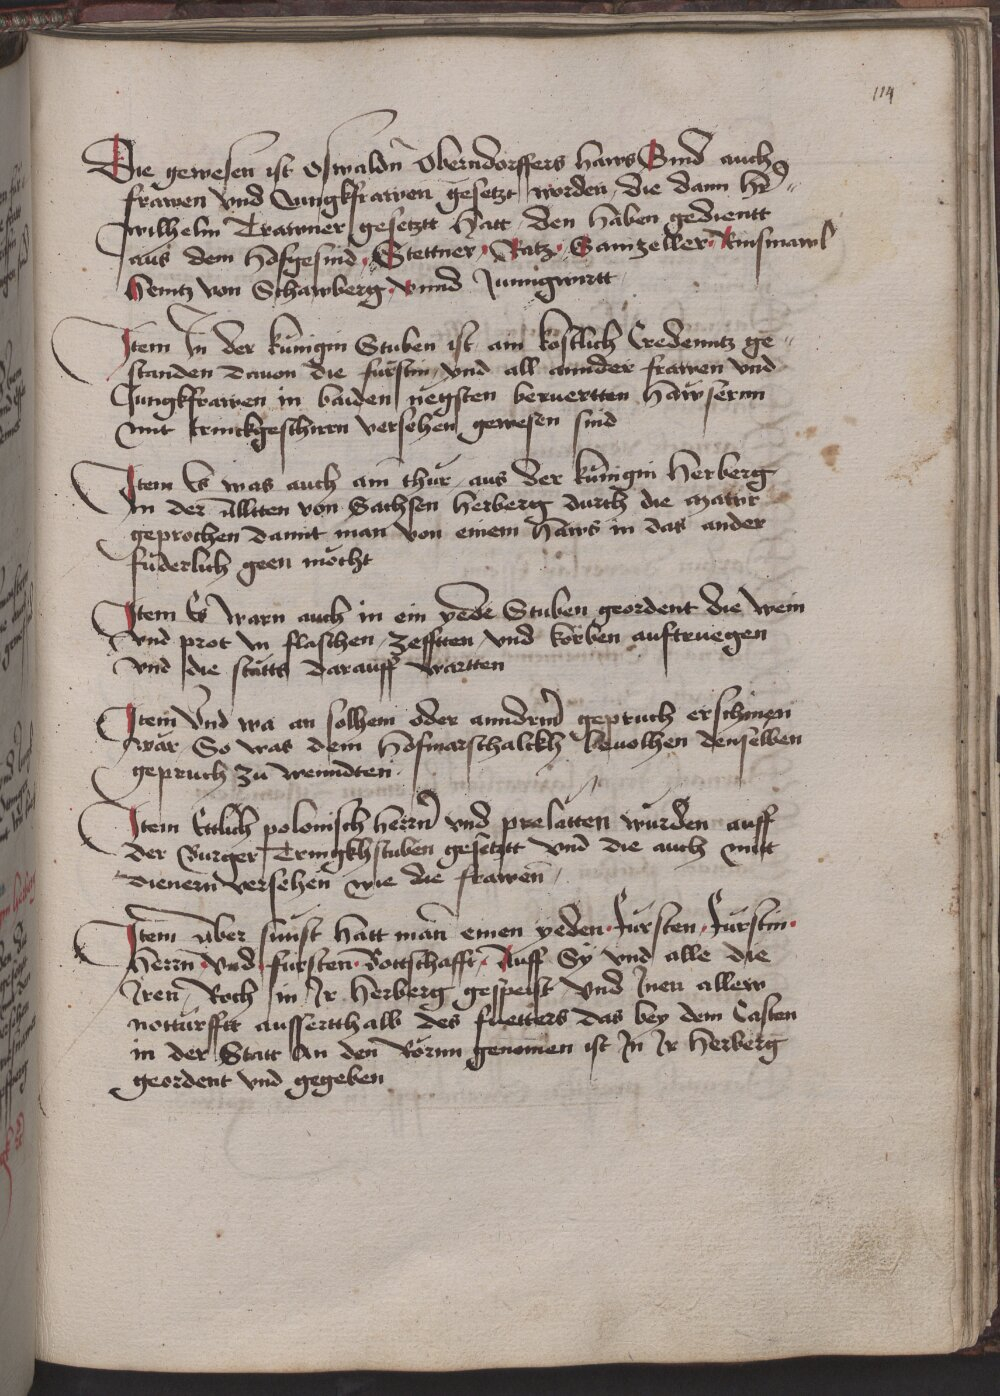 114
Die gewesen ist Oswaldn̄ Oberndorffers haws Sind auch
frawen vnd Jungkfrawen gesetzt worden die dann hr̄
wilhelm Trawner gesetztt hatt den haben gedientt
aus dem hofgesind Stettner Ratz Gamzeller
Heintz von Schawberg vnnd Junngwirtt
Item In der kunigin Stuben ist ain kostlich Credenntz ge
standen dauon die fürstin vnd all annder frawen vnd
Jungkfrawen in baiden negsten beruertten hawsernn
mit trinckgeschirrn versehen gewesen sind
Item Es was auch ain thür aus der künigin herberg
In der alltten von Sachsen herberg durch die mawr
geprochen damit man von einem haws in das ander
fuderlich geen mocht
Item Es warn auch in ein yede Stuben geordent die wein
vnd prot in flaschen zefftten vnd körben auftruegen
vnd die stätts darauff wartten
Item Vnd wa an solhem oder anndrm̄ gepruch erschinen
wär So was dem hofmarschalckh beuolhen denselben
gepruch zu wenndten
Item Ettlich polonisch herrn̄ vnd prelatten wurden auff
der Burger Tringkhstuben gesetztt vnd die auch mit
dienern versehen wie die frawen
Item über sünst hatt man einen yeden fürsten fürstin
herrn vnd fürsten Bottschafft Auff Sy vnd alle die
Iren Roch in Ir herberg gespeist vnd Inen allew
notturfftt ausserthalb des fuetters das bey dem Casten
in der Statt An den körnn genomen ist In Ir herberg
geordent vnd gegeben